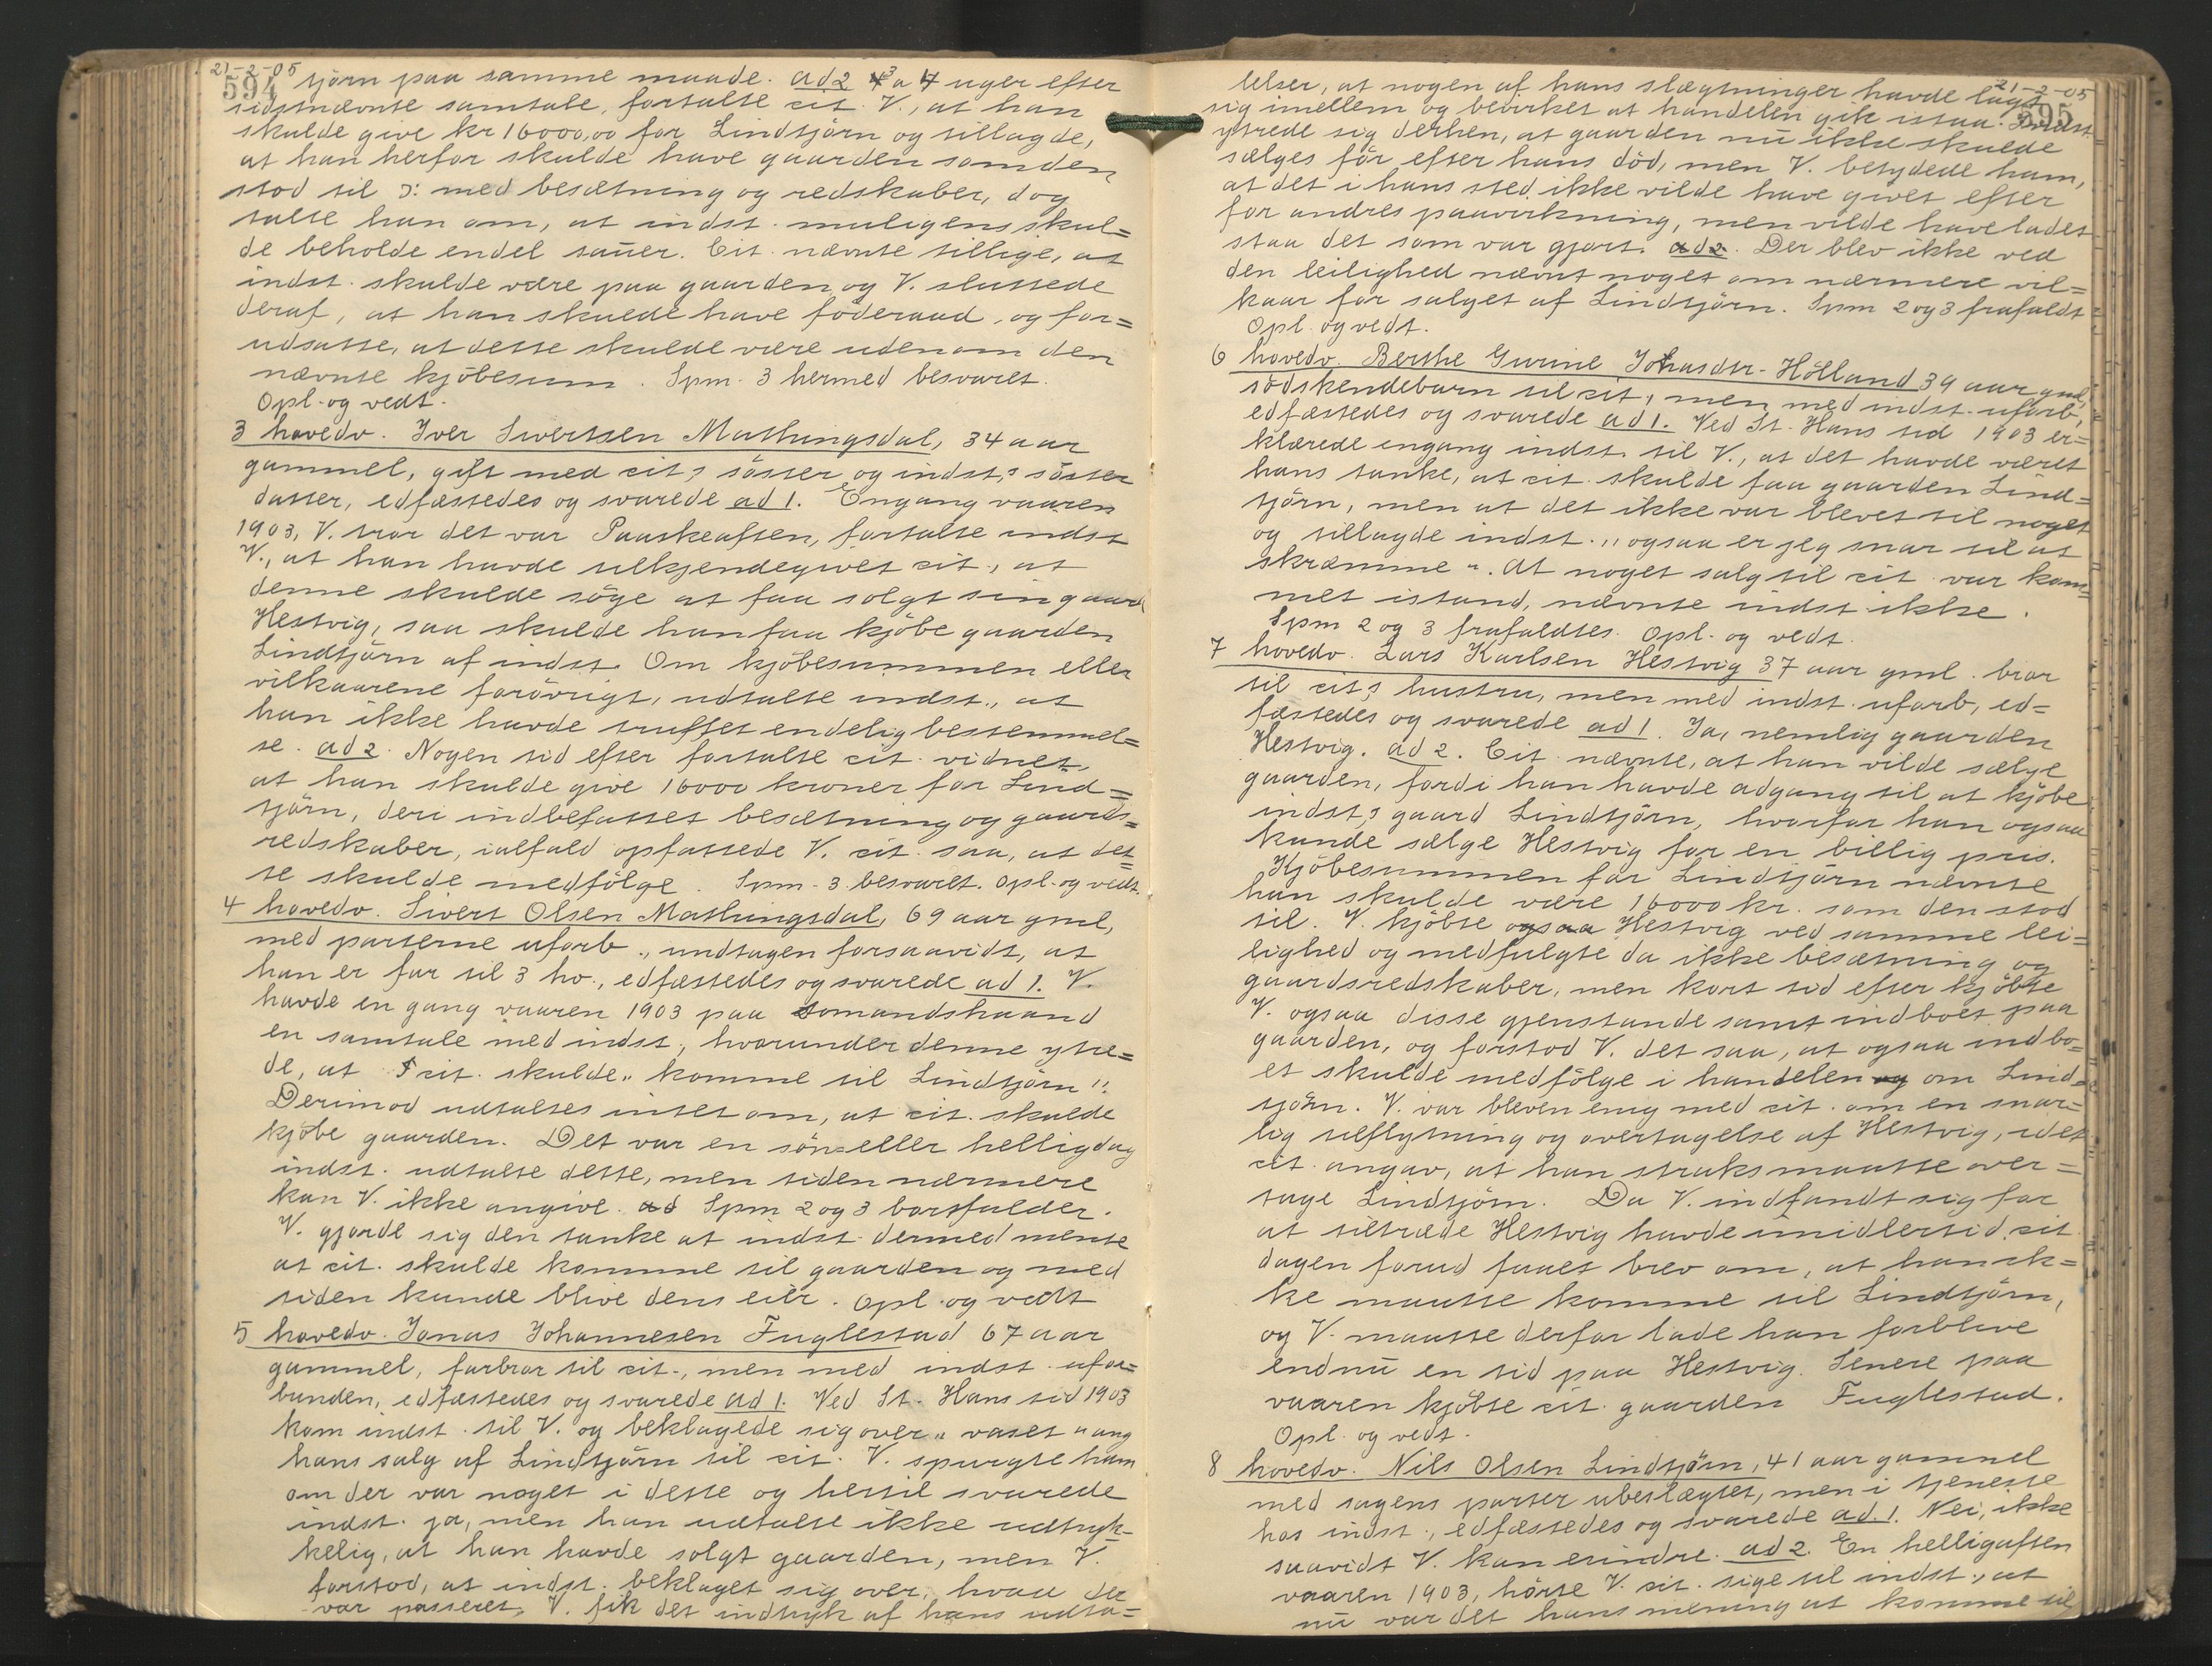 21-2-05
594
tjörn paa samme maade. ad 2 3 a 4 uger efter
sidstnævnte samtale, fortalte cit. V., at han
skulde give kr 16000,00 for Lindtjörn og tillagde,
at han herfor skulde have gaarden som den
stod til ɔ: med besætning og redskaber, dog
talte han om, at indst. muligens skul=
de beholde endel sauer. Cit. nævnte tillige, at
indst. skulde være paa gaarden og V. sluttede
deraf, at han skulde have föderaad, og for=
udsatte, at dette skulde være udenom den
nævnte kjöbesum. Spm. 3 hermed besvaret.
Opl. og vedt.
3 hovedv. Iver Sivertsen Mathingsdal, 34 aar
gammel, gift med cit.s söster og indst.s söster
datter, edfæstedes og svarede ad 1. Engang vaaren
1903, V. tror det var Paaskeaften, fortalte indst
V., at han havde tilkjendegivet cit., at
denne skulde söge at faa solgt sin gaard
Hestvig, saa skulde han faa kjöbe gaarden
Lindtjörn af indst. Om kjöbesummen eller
vilkaarene forövrigt, udtalte indst., at
han ikke havde truffet endelig bestemmel=
se. ad 2. Nogen tid efter fortalte cit. vidnet,
at han skulde give 16000 kroner for Lind=
tjörn, deri indbefattet besætning og gaards=
redskaber, ialfald opfattede V. cit. saa, at det=
te skulde medfölge. Spm. 3 besvaret. Opl. og vedt.
4 hovedv. Sivert Olsen Mathingsdal, 69 aar gml,
med parterne uforb., undtagen forsaavidt, at
han er far til 3 hv., edfæstedes og svarede ad 1. V.
havde en gang vaaren 1903 paa tomandshaand
en samtale med indst., hvorunder denne ytre=
de, at cit. skulde „komme til Lindtjörn".
Derimod udtaltes intet om, at cit. skulde
kjöbe gaarden. Det var en sön= eller helligdag
indst. udtalte dette, men tiden nærmere
kan V. ikke angive. ad Spm 2 og 3 bortfalder.
V. gjorde sig den tanke at indst. dermed mente
at cit. skulde komme til gaarden og med
tiden kunde blive dens eier. Opl. og vedt
5 hovedv. Jonas Johannesen Fuglestad 67 aar
gammel, farbror til cit., men med indst. ufor=
bunden, edfæstedes og svarede ad 1. Ved St. Hans tid 1903
kom indst. til V. og beklagede sig over „vaset" ang
hans salg af Lindtjörn til cit. V. spurgte ham
om der var noget i dette og hertil svarede
indst. ja, men han udtalte ikke udtryk=
kelig, at han havde solgt gaarden, men V.
forstod, at indst. beklaget sig over, hvad der
var passeret. V. fik det indtryk af hans udta=
21-2-05
595
lelser, at nogen af hans slægtninger havde lagt
sig imellem og bevirket at handelen gik istaa. Indst.
ytrede sig derhen, at gaarden nu ikke skulde
sælges för efter hans död, men V. betydede ham,
at det i hans sted ikke vilde have givet efter
for andres paavirkning, men vilde have ladet
staa det som var gjort. ad 2. Der blev ikke ved
den leilighed nævnt noget om nærmere vil=
kaar for salget af Lindtjörn. Spm 2 og 3 frafaldt
Opl. og vedt.
6 hovedv. Berthe Gurine Johnsdtr. Hölland 39 aar gml,
södskendebarn til cit., men med indst. uforb,
edfæstedes og svarede ad 1. Ved St. Hans tid 1903 er=
klærede engang indst. til V., at det havde været
hans tanke, at cit. skulde faa gaarden Lind=
tjörn, men at det ikke var blevet til noget
og tillagde indst. „ogsaa er jeg snar til at
skræmme". At noget salg til cit. var kom=
met istand, nævnte indst ikke.
Spm 2 og 3 frafaldtes. Opl. og vedt.
7 hovedv. Lars Karlsen Hestvig 37 aar gml. bror
til cit.s hustru, men med indst. uforb, ed=
fæstedes og svarede ad 1. Ja, nemlig gaarden
Hestvig. ad 2. Cit. nævnte, at han vilde sælge
gaarden, fordi han havde adgang til at kjöbe
indst.s gaard Lindtjörn, hvorfor han ogsaa
kunde sælge Hestvig for en billig pris.
Kjöbesummen for Lindtjörn nævnte
han skulde være 16000 kr. som den stod
til. V. kjöbte ogsaa Hestvig ved samme lei=
lighed og medfulgte da ikke besætning og
gaardsredskaber, men kort tid efter kjöbte
V. ogsaa disse gjenstande samt indboet paa
gaarden, og forstod V. det saa, at ogsaa indbo=
et skulde medfölge i handelen og om Lind=
tjörn. V. var bleven enig med cit. om en snar=
lig tilflytning og overtagelse af Hestvig, idet
cit. angav, at han straks maatte over=
tage Lindtjörn. Da V. indfandt sig for
at tiltræde Hestvig havde imidlertid cit.
dagen forud faaet brev om, at han ik=
ke maatte komme til Lindtjörn,
og V. maatte derfor lade han forblive
endnu en tid paa Hestvig. Senere paa
vaaren kjöbte cit. gaarden Fuglestad.
Opl. og vedt.
8 hovedv. Nils Olsen Lindtjörn, 41 aar gammel
med sagens parter ubeslægtet, men i tjeneste
hos indst., edfæstedes og svarede ad. 1. Nei, ikke
saavidt V. kan erindre. ad 2. En helligaften
vaaren 1903, hörte V. cit. sige til indst., at
nu var det hans mening at komme til